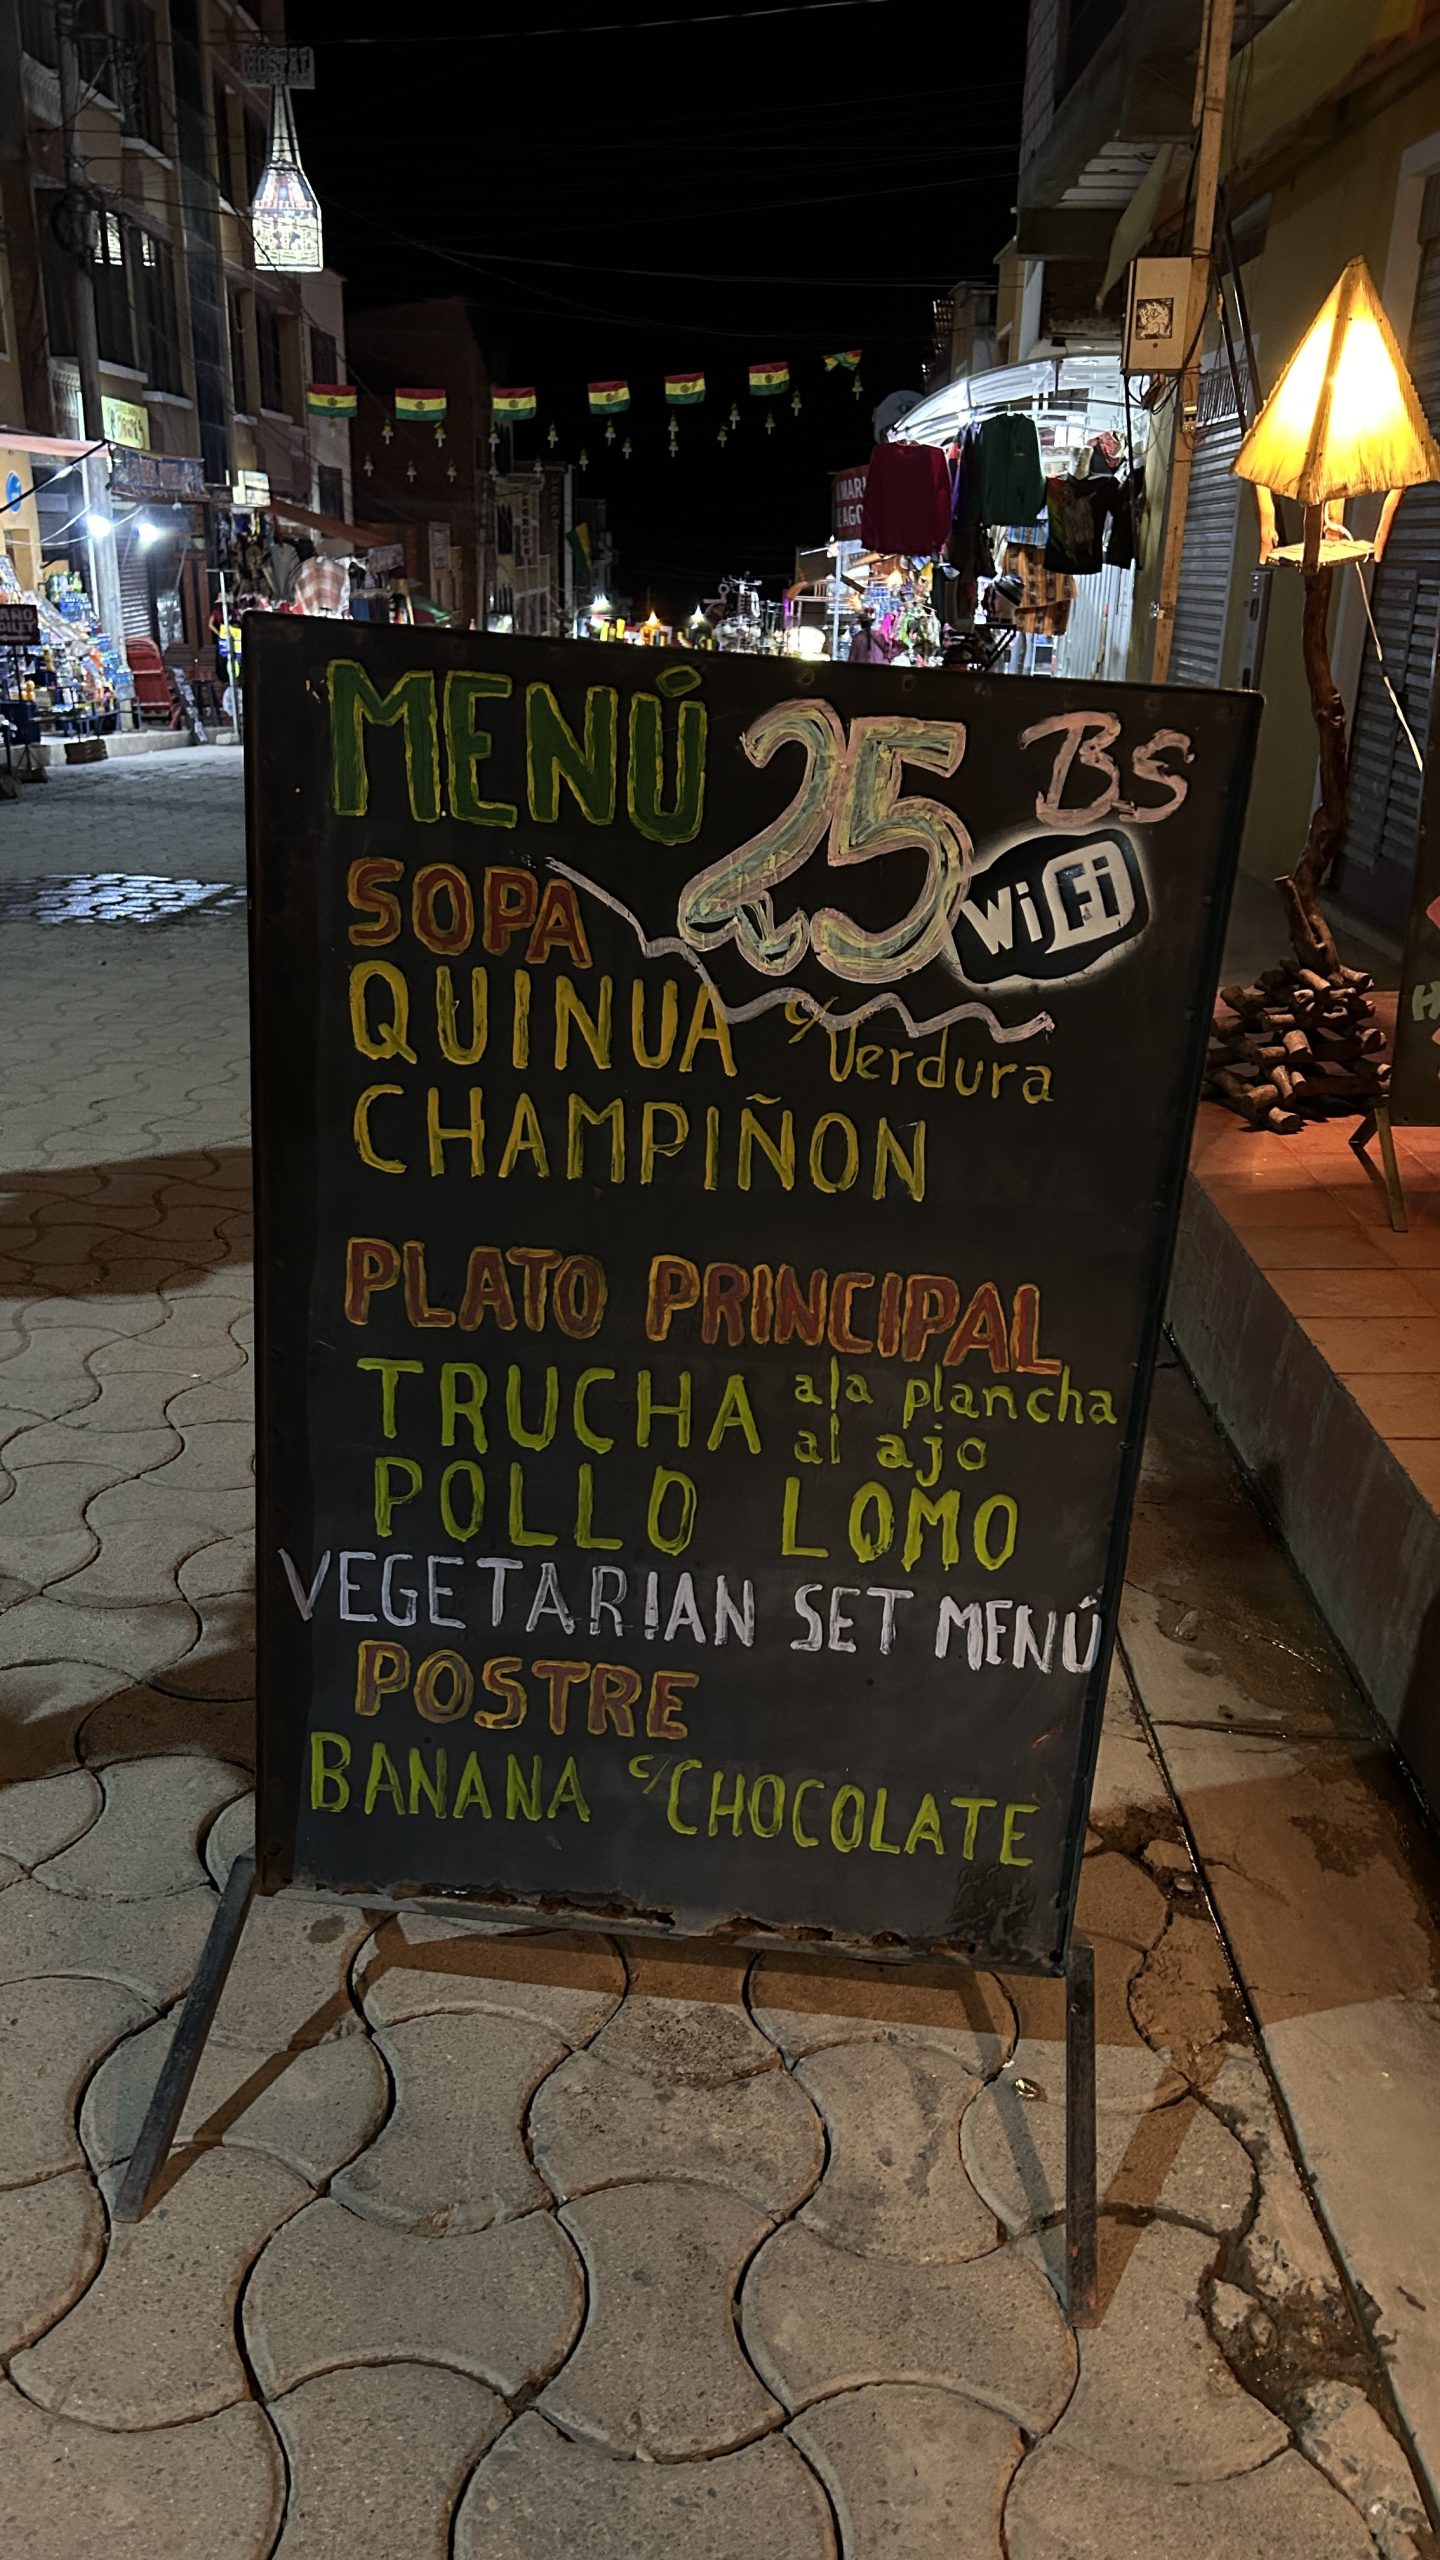 HOSTAL
MENÚ 25 BS
WiFi
SOPA
QUINUA c/Verdura
CHAMPIÑON
PLATO PRINCIPAL
TRUCHA ala plancha
al ajo
POLLO LOMO
VEGETARIAN SET MENÚ
POSTRE
BANANA c/CHOCOLATE